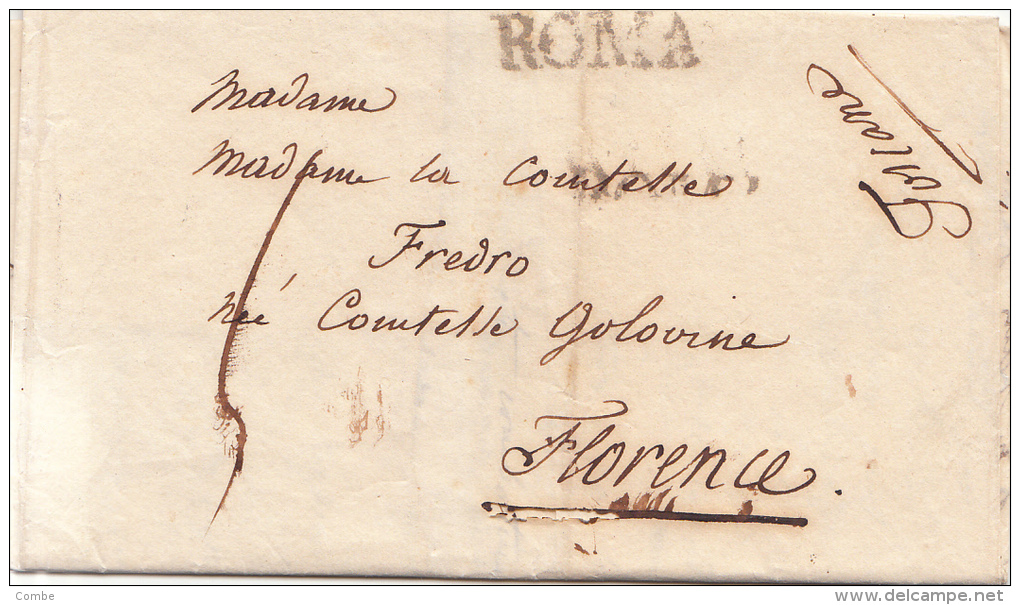 ROMA
Madame
Madame la Comtesse
Fredro
née Comtesse Golovine
Florence.
Combe
delcampe.net